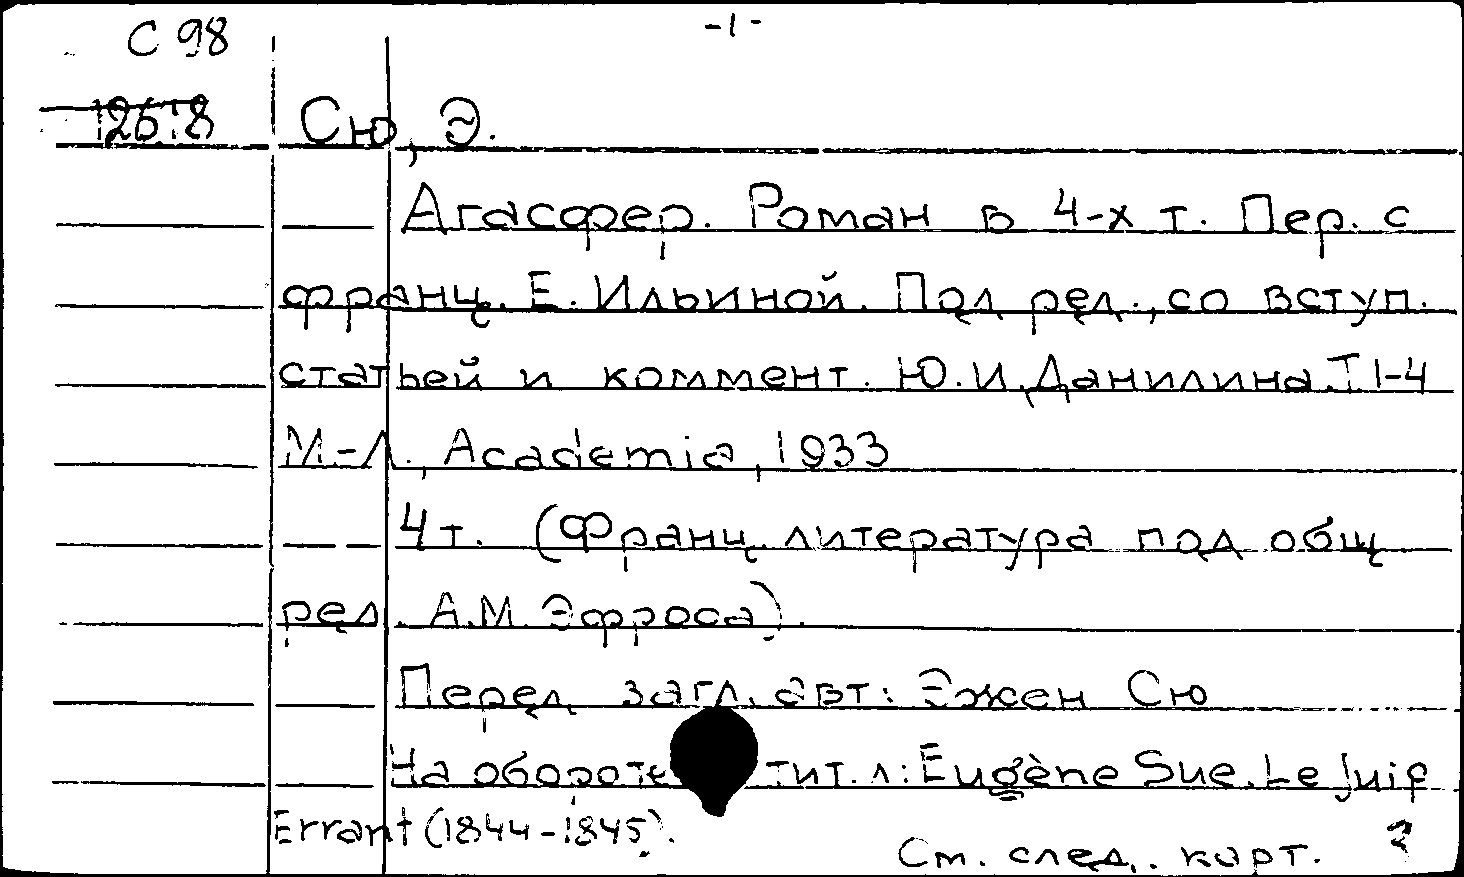 С 98
-1-
12618 Сю, Э.
Агасфер. Роман в 4-х т. Пер. с
франц. Е. Ильиной. Под ред., со вступ.
статьей и коммент. Ю.И.Данилина.Т.1-4
М-Л., Academia, 1933
4т. (Франц. литература под общ
ред. А.М. Эфроса).
Перед загл. авт: Эжен Сю
На обороте тит. л: Eugène Sue. Le juif
Errant (1844-1845).
См. след. карт.